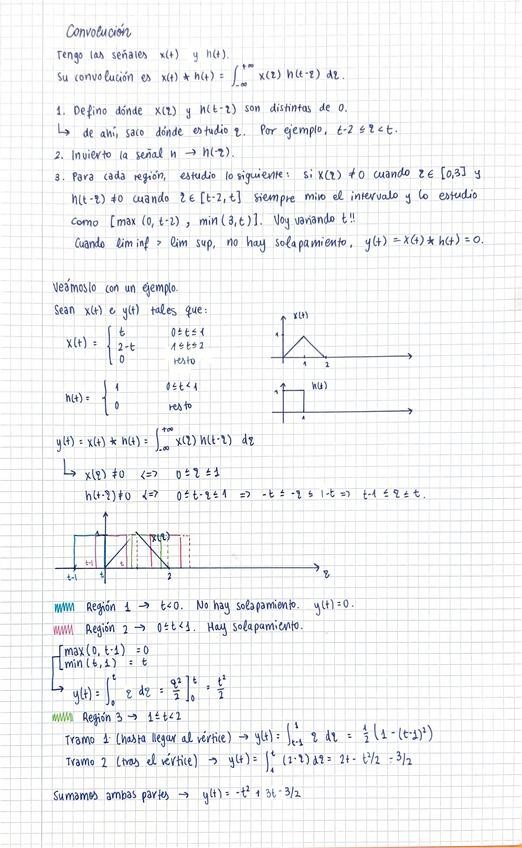 Convolución
Tengo las señales x(t) y h(t).
Su convolución es x(t) * h(t) = ∫_{-∞}^{+∞} x(τ) h(t-τ) dτ.
1. Defino dónde x(τ) y h(t-τ) son distintas de 0.
↳ de ahí, saco dónde estudio τ. Por ejemplo, t-2 ≤ τ < t.
2. Invierto la señal h → h(-τ).
3. Para cada región, estudio lo siguiente: si x(τ) ≠ 0 cuando τ ∈ [0,3] y
h(t-τ) ≠ 0 cuando τ ∈ [t-2, t] siempre miro el intervalo y lo estudio
como [max (0, t-2) , min (3, t)]. Voy variando t!!
Cuando lim inf > lim sup, no hay solapamiento, y(t) = x(t) * h(t) = 0.
Veámoslo con un ejemplo.
Sean x(t) e y(t) tales que:
x(t) = { t 0 ≤ t ≤ 1
2-t 1 ≤ t ≤ 2
0 resto
x(t)
1
1 2
h(t) = { 1 0 ≤ t < 1
0 resto
h(t)
1
1
y(t) = x(t) * h(t) = ∫_{-∞}^{+∞} x(τ) h(t-τ) dτ
↳ x(τ) ≠ 0 <=> 0 ≤ τ ≤ 1
h(t-τ) ≠ 0 <=> 0 ≤ t-τ ≤ 1 => -t ≤ -τ ≤ 1-t => t-1 ≤ τ ≤ t.
1 x(τ)
t-1 t t-1 t 2 τ
Región 1 → t<0. No hay solapamiento. y(t) = 0.
Región 2 → 0 ≤ t < 1. Hay solapamiento.
max (0, t-1) = 0
min (t, 1) = t
↳ y(t) = ∫_0^t τ dτ = τ²/2 ]_0^t = t²/2
Región 3 → 1 ≤ t < 2
Tramo 1 (hasta llegar al vértice) → y(t) = ∫_{t-1}^1 τ dτ = 1/2 (1 - (t-1)²)
Tramo 2 (tras el vértice) → y(t) = ∫_1^t (2-τ) dτ = 2t - t²/2 - 3/2
Sumamos ambas partes → y(t) = -t² + 3t - 3/2